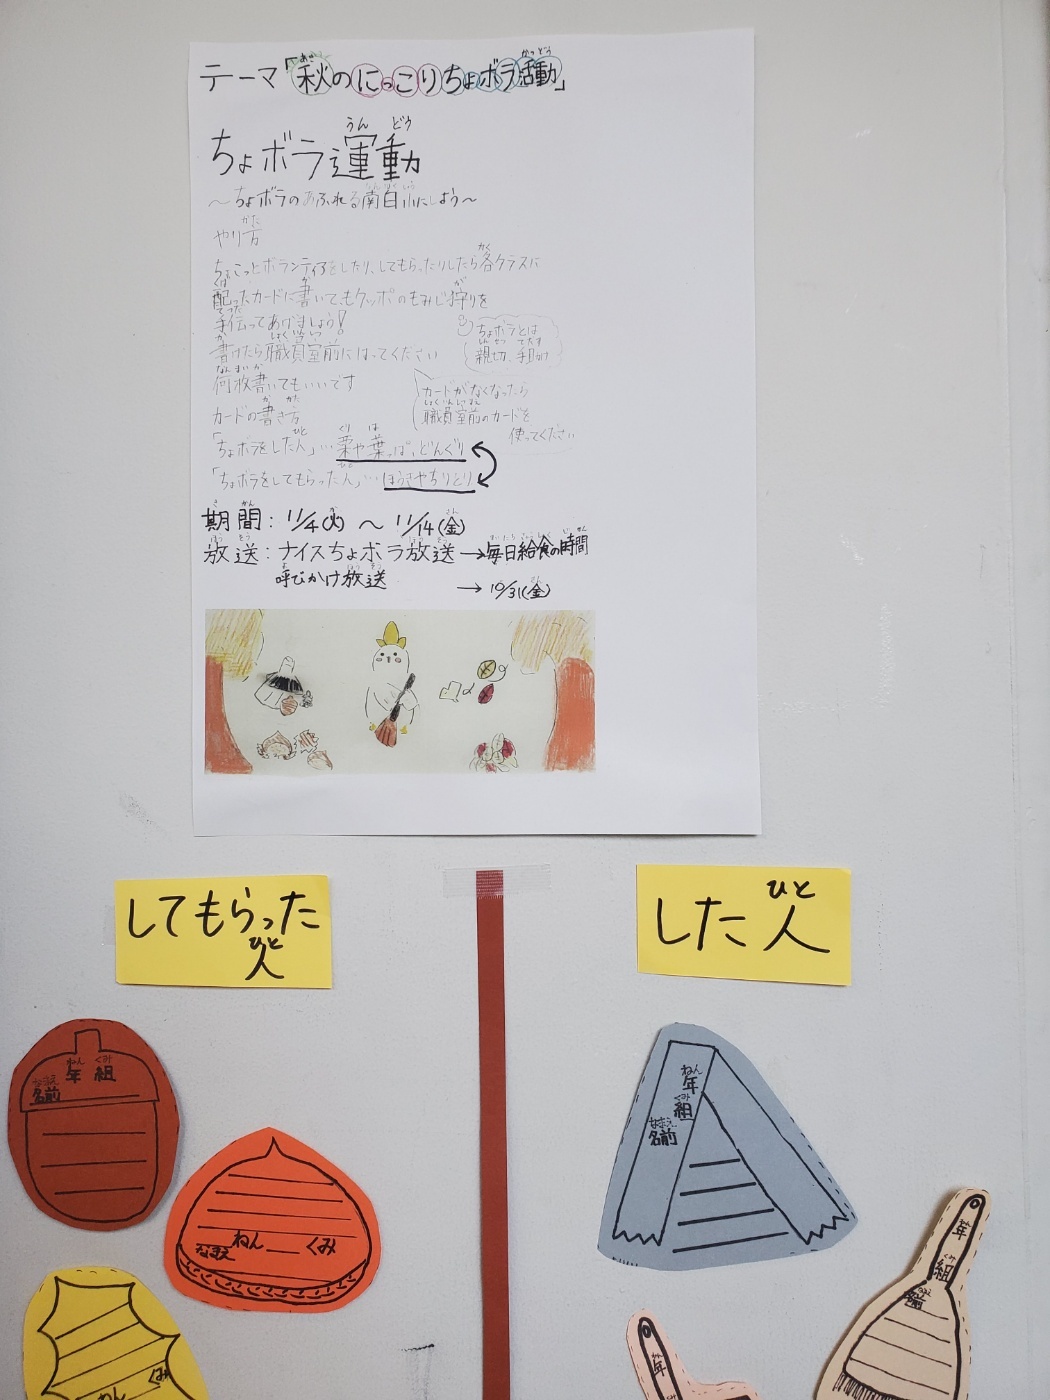 テーマ「秋のにっこりちょボラ活動」
ちょボラ運動
～ちょボラのあふれる南白小にしよう～
やり方
ちょこっとボランティアをしたり、してもらったりしたら各クラスに
配ったカードに書いてもクッポのもみじ狩りを
手伝ってあげましょう!
書けたら職員室前にはってください
何枚書いてもいいです
ちょボラとは
親切、手助け
カードがなくなったら
職員室前のカードを
使ってください
カードの書き方
「ちょボラをした人」…栗や葉っぱ、どんぐり
「ちょボラをしてもらった人」…ほうきやちりとり
期間:11/4(火)～11/14(金)
放送:ナイスちょボラ放送→毎日給食の時間
呼びかけ放送→10/31(金)
してもらった
人
した人
年 組
名前
なまえ ねん くみ
ねん くみ
年
組
名前
年
組
名前
年